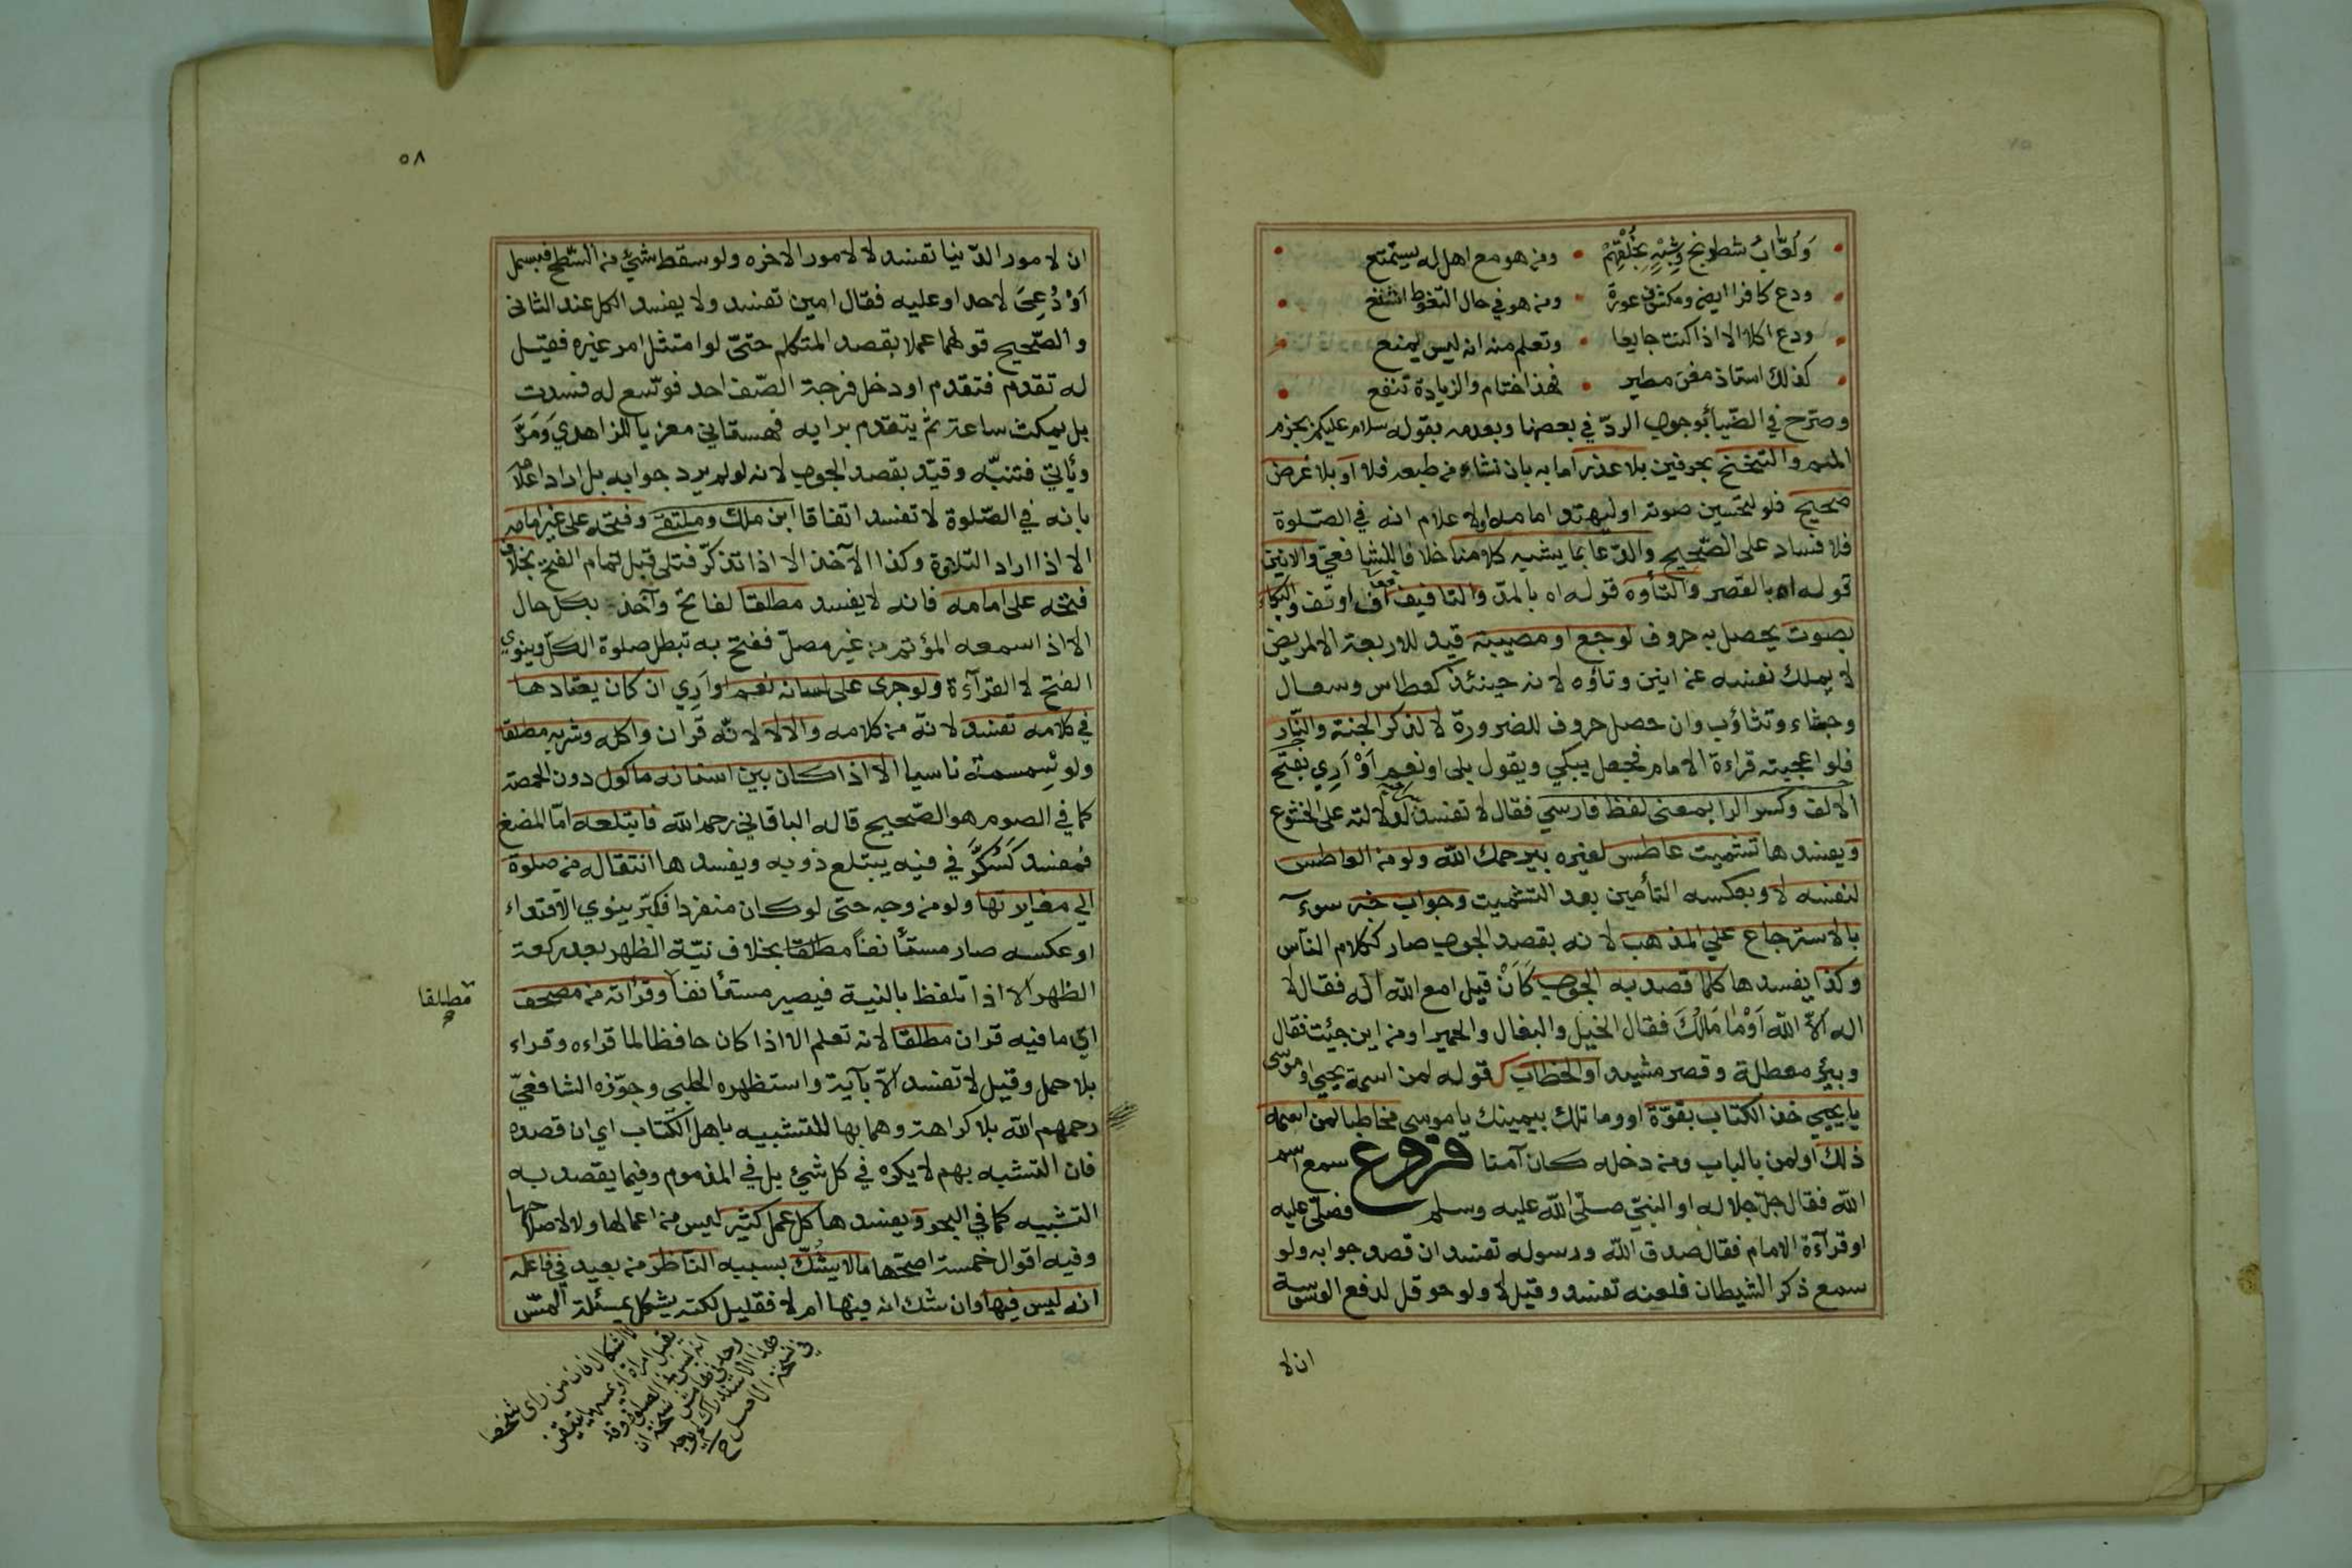 ولعّابُ شطرنج وشِبْهٍ بخُلْقِهِمْ • ومن هو مع اهل له يستمتع
ودع كافرا ايضا ومكشوف عورة • ومن هو في حال التغوط اشنع
ودع اكلا الا اذا كنت جايعا • وتعلم منه انه ليس يمنع
كذلك استاذ مغن مطير • فهذا ختام والزيادة تنفع
وصرّح في الضيا بوجوب الردّ في بعضها وبعدمه بقوله سلام عليكم بجزم
الميم والتنحنح بحرفين بلا عذر اما به بان نشاء من طبعه فلا او بلا غرض
صحيح فلو لتحسين صوته او ليهتدى امامه او لاعلام انه في الصّلوة
فلا فساد على الصّحيح والدّعا بما يشبه كلامنا خلافا للشافعيّ والانين
قوله اه بالقصر والتأوه قوله اه بالمدّ والتافيف اف او تف والبكاء
بصوت يحصل به حروف لوجع او مصيبة قيد للاربعة الا لمريض
لا يملك نفسه عن انين وتاؤه لانه حينئذ كعطاس وسعال
وجشاء وتثاؤب وان حصل حروف للضرورة لا لذكر الجنة والنّار
فلو اعجبته قراءة الامام فجعل يبكي ويقول بلى او نعم اوْ اَرِي بفتح
الالف وكسر الرا بمعنى لفظ فارسي فقال لا تفسد لدلالته على الخشوع
ويفسدها تشميت عاطس لغيره بيرحمك الله ولو من العاطس
لنفسه لا وبعكسه التأمين بعد التشميت وجواب خبر سوء
بالاسترجاع على المذهب لانه بقصد الجواب صار ككلام النّاس
وكذا يفسدها كلما قصد به الجواب كَاَنْ قيل امع الله اله فقال لا
اله الّا الله اَوْما مَالكَ فقال الخيل والبغال والحمير او من اين جئت فقال
وبئر معطلة وقصر مشيد او الخطاب كقوله لمن اسمه يحيى او موسى
يا يحيى خذ الكتاب بقوّة او وما تلك بيمينك يا موسى مخاطبا لمن اسمه
ذلك او لمن بالباب ومن دخله كان آمنا فروع سمع اسم
الله فقال جلّ جلاله او النبيّ صلّى الله عليه وسلم فصلّى عليه
او قرآءة الامام فقال صدق الله ورسوله تفسد ان قصد جوابه ولو
سمع ذكر الشيطان فلعنه تفسد وقيل لا ولو حوقل لدفع الوسوسة
ان لا
٥٨
ان لامور الدّنيا تفسد لا لامور الاخره ولو سقط شيء من السّطح فبسمل
اَوْ دُعِيَ لاحد او عليه فقال امين تفسد ولا يفسد الكل عند الثانى
والصّحيح قولهما عملا بقصد المتكلم حتىّ لو امتثل امر غيره فقيل
له تقدم فتقدم او دخل فرجة الصّف احد فوسّع له فسدت
بل يمكث ساعة ثم يتقدم برايه قهستانى معزيا للزاهدي وَمَرَّ
ويأتي فتنبّه وقيّد بقصد الجواب لانه لو لم يرد جوابه بل اراد اعلامه
بانه في الصّلوة لا تفسد اتفاقا ابن ملك وملتقى وفتحه على غير امامه
الا اذا اراد التلاوة وكذا الآخذ الا اذا تذكّر فتلى قبل تمام الفتح بخلاف
فتحه على امامه فانه لا يفسد مطلقا لفاتح وآخذ بكل حال
الا اذ اسمعه المؤتم من غير مصلّ ففتح به تبطل صلوة الكلّ وينوي
الفتح لا القرآءة ولو جرى على لسانه نعم او اَرِي ان كان يعتادها
في كلامه تفسد لانّه من كلامه والا لا لانّه قرآن واكله وشربه مطلقا
ولو سِمسمة ناسيا الا اذا كان بين اسنانه ماكول دون الحمصة
كما في الصوم هو الصّحيح قاله الباقاني رحمه الله فابتلعه امّا المضغ
فمفسد كَسُكَّرٍ في فيه يبتلع ذوبه ويفسدها انتقاله من صلوة
الى مغايرتها ولو من وجه حتى لو كان منفردا فكبّر ينوي الاقتداء
او عكسه صار مستأنفاً مطلقا بخلاف نيّة الظهر بعد ركعة
الظهر الا اذا تلفظ بالنية فيصير مستأنفا وقرأته من مصحف
مطلقا
ايّ ما فيه قران مطلقا لانه تعلم الا اذا كان حافظا لما قراءه وقراء
بلا حمل وقيل لا تفسد الّا بآية واستظهره الحلبى وجوّزه الشافعيّ
رحمهم الله بلا كراهة وهما بها للتشبيه باهل الكتاب اي ان قصده
فان التشبه بهم لا يكره في كل شيئ بل في المذموم وفيما يقصد به
التشبيه كما في البحر ويفسدها كل عمل كثير ليس من اعمالها ولا لاصلاحها
وفيه اقوال خمسة اصحّها ما لا يشُكّ بسببه النّاظر من بعيد في فاعله
انه ليس فيها وان شك انه فيها ام لا فقليل لكنه يشكل بمسئلة المسّ
لا اشكال فان من راى شخصا
يقبل امراة او يمسها يتيقن
انه ليس في الصلوة وقد
هذا الاستدراك لم يوجد
في نسخة الاصل صح